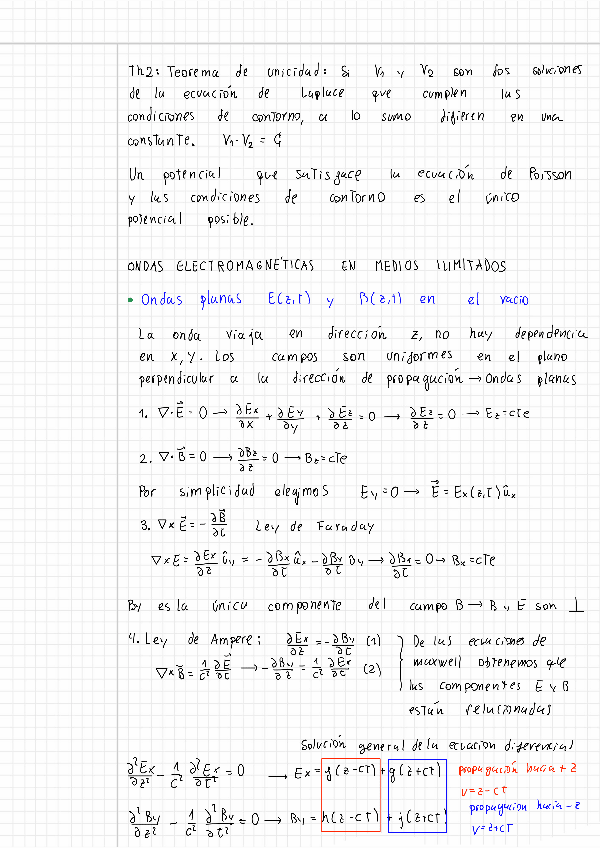 Th2: Teorema de unicidad: Si V₁ y V₂ son dos soluciones
de la ecuación de Laplace que cumplen las
condiciones de contorno, a lo sumo difieren en una
constante. V₁-V₂ = C
Un potencial que satisface la ecuación de Poisson
y las condiciones de contorno es el único
potencial posible.
ONDAS ELECTROMAGNÉTICAS EN MEDIOS ILIMITADOS
• Ondas planas E(z,t) y B(z,t) en el vacio
La onda viaja en dirección z, no hay dependencia
en x, y. Los campos son uniformes en el plano
perpendicular a la dirección de propagación → Ondas planas
1. ∇·E⃗ = 0 → ∂Ex/∂x + ∂Ey/∂y + ∂Ez/∂z = 0 → ∂Ez/∂z = 0 → Ez = cte
2. ∇·B⃗ = 0 → ∂Bz/∂z = 0 → Bz = cte
Por simplicidad elegimos Ey = 0 → E⃗ = Ex(z,t) ûx
3. ∇×E⃗ = -∂B⃗/∂t Ley de Faraday
∇×E = ∂Ex/∂z ûy = -∂Bx/∂t ûx - ∂By/∂t ûy → ∂Bx/∂t = 0 → Bx = cte
By es la única componente del campo B → B y E son ⊥
4. Ley de Ampere: ∂Ex/∂z = -∂By/∂t (1)
∇×B⃗ = 1/c² ∂E⃗/∂t → -∂By/∂z = 1/c² ∂Ex/∂t (2)
De las ecuaciones de
maxwell obtenemos que
las componentes E y B
están relacionadas
Solución general de la ecuacion diferencial
∂²Ex/∂z² - 1/c² ∂²Ex/∂t² = 0 → Ex = f(z-ct) + g(z+ct)
propagación hacia +z
v = z-ct
∂²By/∂z² - 1/c² ∂²By/∂t² = 0 → By = h(z-ct) + j(z+ct)
propagacion hacia -z
v = z+ct